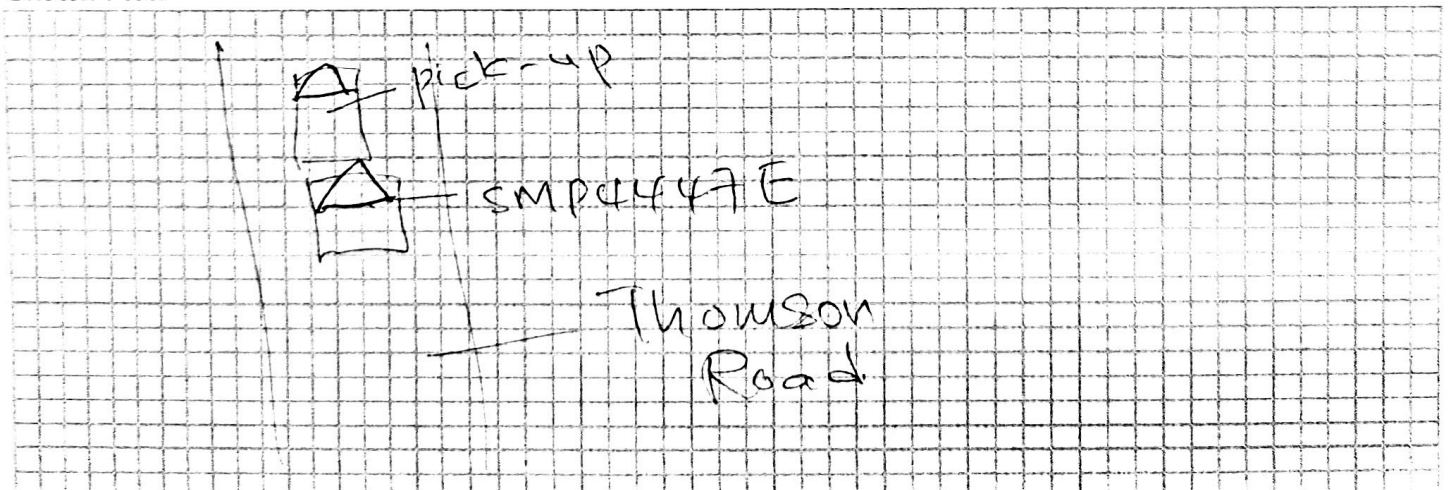 pick-up
SMP4447E
Thomson
Road